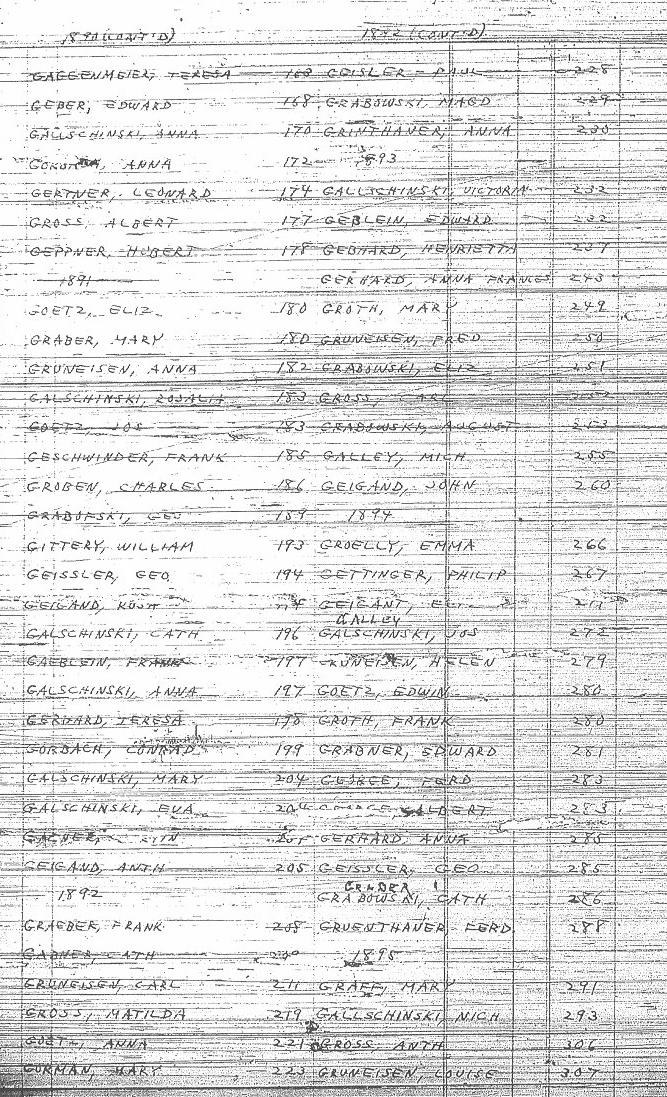 1890 (CONT'D)
GAGGENMEIER, TERESA 168
GEBER, EDWARD 168
GALLSCHINSKI, ANNA 170
ANNA 172
GERTNER, LEONARD 174
GROSS, ALBERT 177
GEPPNER, HUBERT 178
1891
GOETZ, ELIZ 180
GRABER, MARY 180
GRUNEISEN, ANNA 182
GALSCHINSKI, ROSALIA 183
GOETZ, JOS 183
GESCHWINDER, FRANK 185
GROBEN, CHARLES 186
GRABOFSKI, GEO 189
GITTERY, WILLIAM 193
GEISSLER, GEO 194
GEIGAND,
GALSCHINSKI, CATH 196
GAEBLEIN, FRANK 197
GALSCHINSKI, ANNA 197
GERHARD, TERESA 198
GORBACH, CONRAD 199
GALSCHINSKI, MARY 204
GALSCHINSKI, EVA 204
GAGNER,
GEIGAND, ANTH 205
1892
GRAEBER, FRANK 208
GABNER, CATH
GRUNEISEN, CARL 211
GROSS, MATILDA 219
GOETZ, ANNA 221
GORMAN, MARY 223
1892 (CONT'D)
GEISLER PAUL 228
GRABOWSKI, MAGD 229
GRINTHANER, ANNA 230
1893
GALLSCHINSKI, VICTORIA 232
GEBLEIN, EDWARD 232
GEBHARD, HENRIETTA 237
GERHARD, ANNA FRANCES 243
GROTH, MARY 249
GRUNEISEN, FRED 250
GRABOWSKI, ELIZ 251
GROSS, CARL
GRABOWSKI, AUGUST 253
GALLEY, MICH 255
GEIGAND, JOHN 260
1894
GROELLY, EMMA 266
GETTINGER, PHILIP 267
GEIGANT,
GALLEY
GALSCHINSKI, JOS 272
GRUNEISEN, HELEN 279
GOETZ, EDWIN 280
GROTH, FRANK 280
GRABNER, EDWARD 281
GEORGE, FERD 283
GEORGE, ALBERT 283
GERHARD, ANNA 285
GEISSLER, GEO 285
GRABOWSKI, CATH 286
GRUENTHANER FERD 288
1895
GRAFF, MARY 291
GALLSCHINSKI, NICH 293
GROSS ANTH 306
GRUNEISEN, LOUISE 307